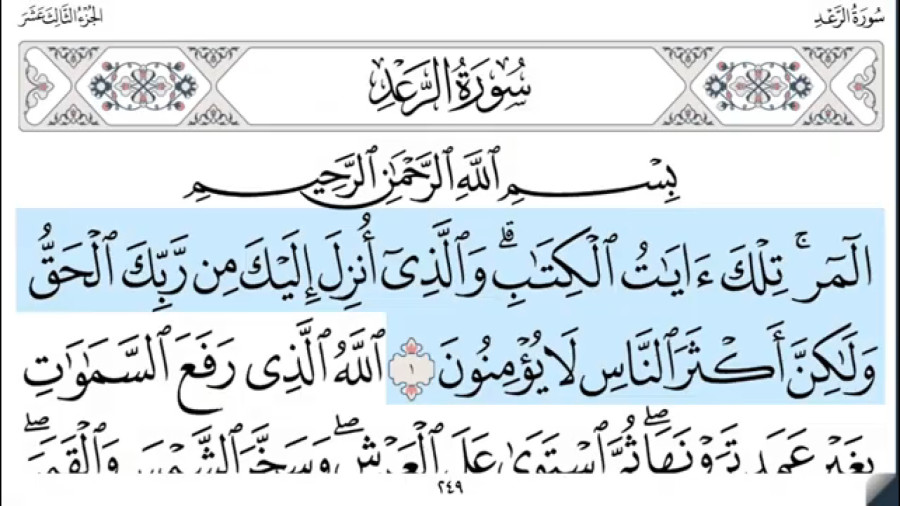 سُورَةُ الرَّعْدِ
الجُزْءُ الثَّالِثَ عَشَرَ
سُورَةُ الرَّعْدِ
بِسْمِ ٱللَّهِ ٱلرَّحْمَٰنِ ٱلرَّحِيمِ
الٓمٓر ۚ تِلْكَ ءَايَٰتُ ٱلْكِتَٰبِ ۗ وَٱلَّذِىٓ أُنزِلَ إِلَيْكَ مِن رَّبِّكَ ٱلْحَقُّ
وَلَٰكِنَّ أَكْثَرَ ٱلنَّاسِ لَا يُؤْمِنُونَ ١ ٱللَّهُ ٱلَّذِى رَفَعَ ٱلسَّمَٰوَٰتِ
بِغَيْرِ عَمَدٍ تَرَوْنَهَا ۖ ثُمَّ ٱسْتَوَىٰ عَلَى ٱلْعَرْشِ ۖ وَسَخَّرَ ٱلشَّمْسَ وَٱلْقَمَرَ ۖ
٢٤٩